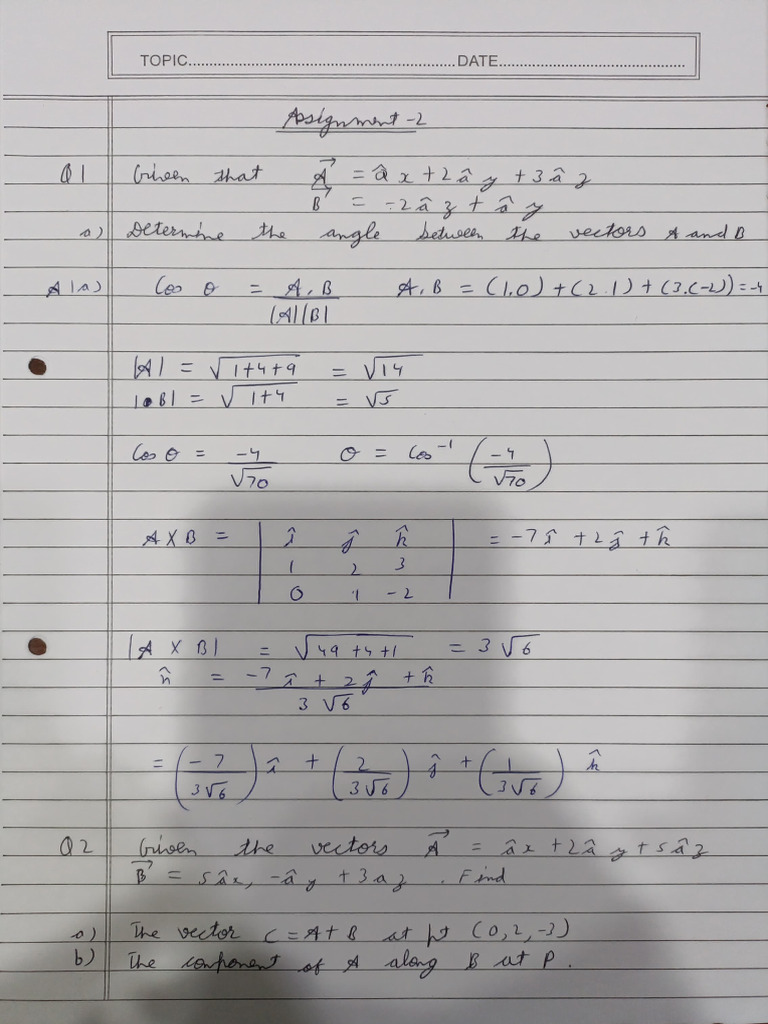 TOPIC.................................................................DATE.............................................
Assignment -2
Q1 Given that A⃗ = âx + 2ây + 3âz
B⃗ = -2âz + ây
a) Determine the angle between the vectors A and B
A1a) Cos θ = A.B / |A||B| A.B = (1.0) + (2.1) + (3.(-2)) = -4
|A| = √(1+4+9) = √14
|B| = √(1+4) = √5
Cos θ = -4/√70 θ = Cos⁻¹ (-4/√70)
A X B = | î ĵ k̂ | = -7î + 2ĵ + k̂
1 2 3
0 1 -2
|A X B| = √(49+4+1) = 3√6
n̂ = (-7î + 2ĵ + k̂) / 3√6
= (-7/3√6) î + (2/3√6) ĵ + (1/3√6) k̂
Q2 Given the vectors A⃗ = âx + 2ây + 5âz
B⃗ = 5âx, -ây + 3az. Find
a) The vector C = A + B at pt (0, 2, -3)
b) The conponent of A along B at P.